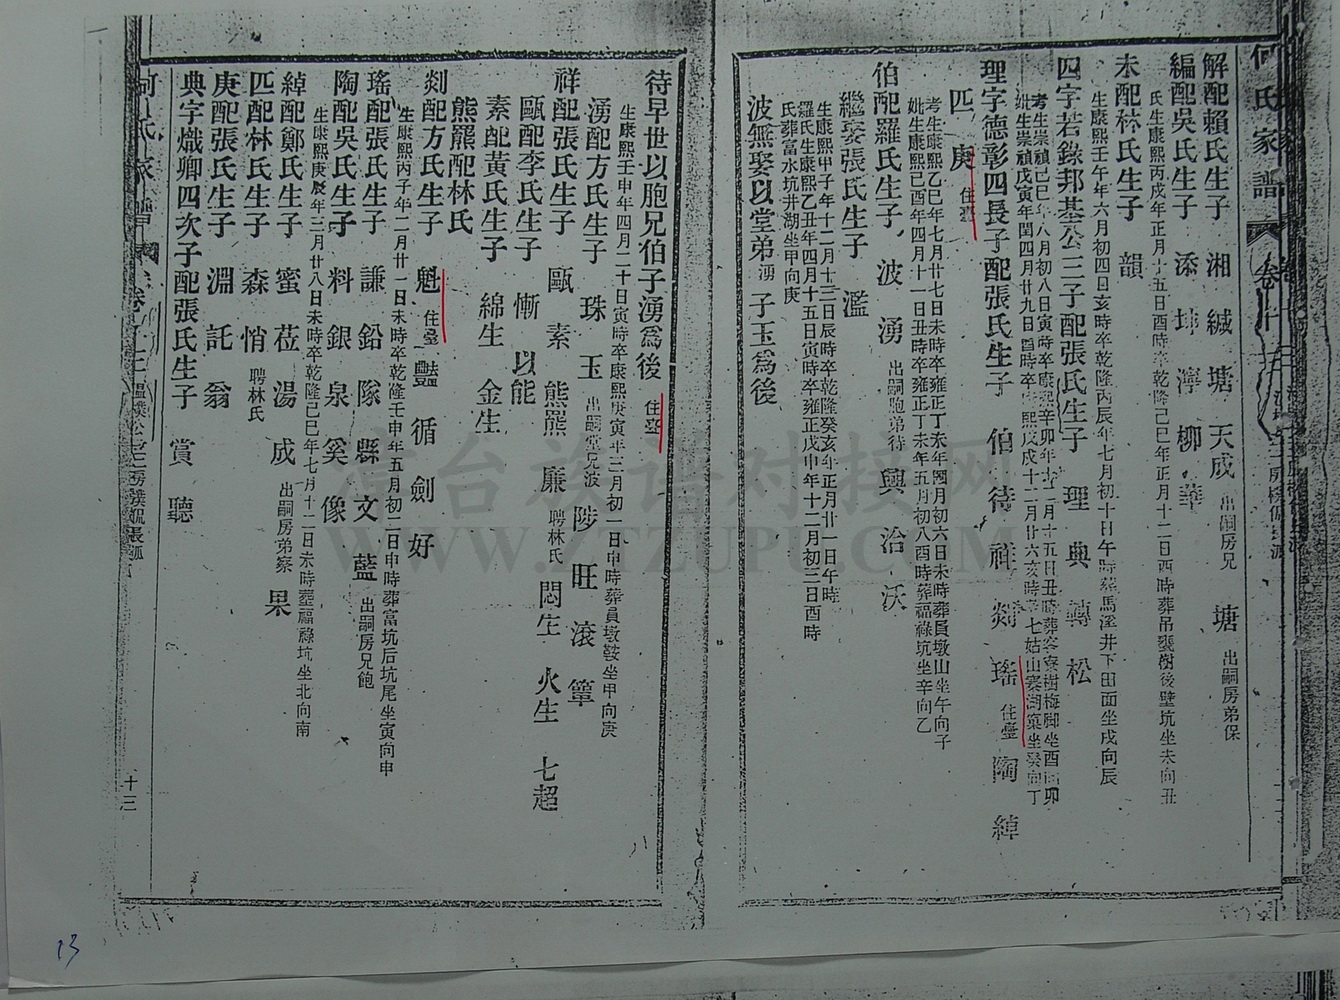 何氏家譜 卷十二
解配賴氏生子 湘 緘 塘 天成 出嗣房兄 塘 出嗣房弟保
編配吳氏生子 添 坤 濘 柳 華
氏生康熙丙戌年正月十五日酉時卒乾隆己巳年正月十二日酉時葬吊甕樹後壁坑坐未向丑
未配林氏生子 韻
生康熙壬午年六月初四日亥時卒乾隆丙辰年七月初十日午時葬馬溪井下田面坐戌向辰
四字若錄邦基公三子配張氏生子 理 典 轉 松
考生崇禎己巳年八月初八日寅時卒康熙辛卯年十二月十五日丑時葬寮樹梅脚坐酉向卯
妣生崇禎戊寅年閏四月廿九日酉時卒康熙戊戌十二月廿六亥時葬七姑山寨湖窠坐癸向丁
理字德彰四長子配張氏生子 伯 待 祥 剡 瑤 住臺 陶 綽
匹 庚 住臺
考生康熙乙巳年七月廿七日未時卒雍正丁未年閏月初六日未時葬員墩山坐午向子
妣生康熙己酉年四月十一日丑時卒雍正丁未年五月初八酉時葬福祿坑坐辛向乙
伯配羅氏生子 波 湧 出嗣胞弟待 興 洽 沃
繼娶張氏生子 濫
生康熙甲子年十二月十三日辰時卒乾隆癸亥年正月廿一日午時
羅氏生康熙乙丑年四月十五日寅時卒雍正戊申年十二月初三日酉時
氏葬富水坑井湖坐甲向庚
波無娶以堂弟湧子玉為後
待早世以胞兄伯子湧為後 住臺
生康熙壬申年四月二十日寅時卒康熙庚寅年三月初一日申時葬員墩鞍坐甲向庚
湧配方氏生子 珠 玉 出嗣堂兄波
祥配張氏生子 甌 素 熊羆 廉 聘林氏 陟 旺 滾 簞
甌配李氏生子 慚 以能 悶生 火生 七超
素配黃氏生子 綿生 金生
熊羆配林氏
剡配方氏生子 魁 住臺 豔 循 劍 好
生康熙丙子年二月廿一日未時卒乾隆壬申年五月初二日申時葬富坑后坑尾坐寅向申
瑤配張氏生子 謙 鉛 隊 縣 文 藍 出嗣房兄飽
陶配吳氏生子 料 銀 泉 奚 像
生康熙庚辰年三月廿八日未時卒乾隆己巳年七月十二日未時葬福祿坑坐北向南
綽配鄭氏生子 蜜 莅 湯 成 出嗣房弟察 果
匹配林氏生子 森 悄 聘林氏
庚配張氏生子 淵 託 翁
典字熾卿四次子配張氏生子 賞 聽
何氏家譜 卷十二
十三
13
台族谱对接网
WWW.ZTZUPU.COM